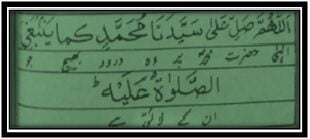 اَللّٰهُمَّ صَلِّ عَلٰی سَيِّدِنَا مُحَمَّدٍ كَمَا يَنْبَغِي
الٰہی حضرت محمدؐ پر وہ درود بھیج جو
الصَّلٰوةُ عَلَيْهِ
ان کے لائق ہے